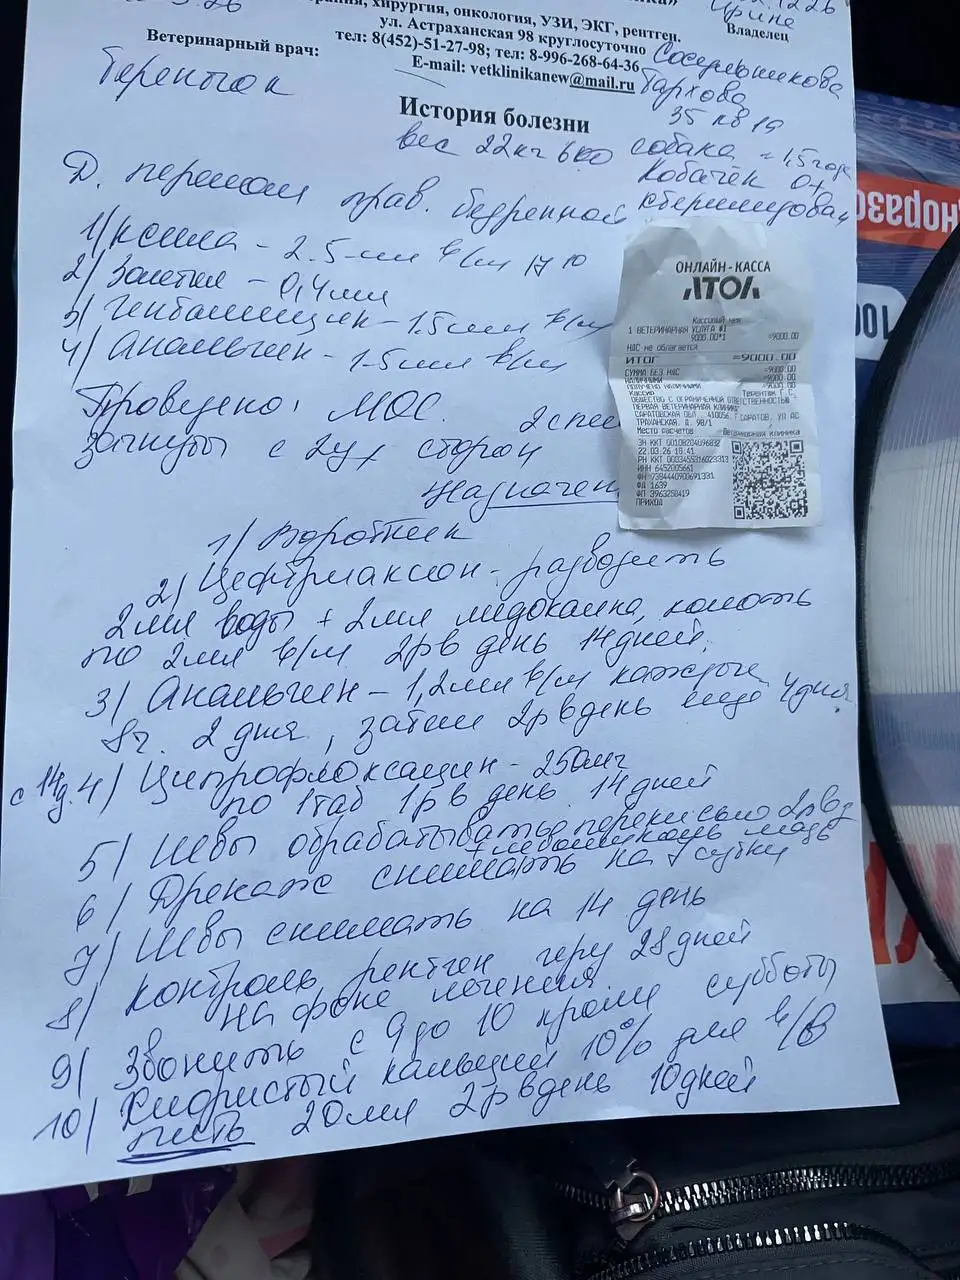 хирургия, онкология, УЗИ, ЭКГ, рентген.
ул. Астраханская 98 круглосуточно
тел: 8(452)-51-27-98; тел: 8-996-268-64-36
E-mail: vetklinikanew@mail.ru
Ветеринарный врач:
Ирине
Владелец
Сосельникова
Тархова
35 кв 19
История болезни
вес 22кг
собака ≈ 1,5 года
Кобачек
стерилизован
Д. перелом прав. бедренной
1/ Ксила - 2.5 мл в/м 17 10
2/ Золетил - 0,4 мл
3/ - 1.5 мл в/м
4/ Анальгин - 1.5 мл в/м
Проведено: МОС. 2 спе
загнуты с 2ух сторон
Назначен
1/ Воротник
2/ Цефтриаксон - разводить
2мл воды + 2мл лидокаина, колоть
по 2мл в/м 2р в день 14 дней.
3/ Анальгин - 1,2мл в/м каждые
8ч. 2 дня, затем 2р в день еще 4 дня.
с 14д. 4/ Ципрофлоксацин - 250мг
по 1таб 1р в день 14 дней
5/ Швы обрабатывать перекисью 2р в д
мазь
6/ Дренаж снимать на сутки
7/ Швы снимать на 14 день
8/ контроль рентген через 28 дней
на фоне лечения
9/ Звонить с 9 до 10 кроме субботы
10/ Хлористый кальций 10% для в/в
пить 20мл 2р в день 10 дней
ОНЛАЙН-КАССА
АТОЛ
Кассовый чек
1 ВЕТЕРИНАРНАЯ УСЛУГА #1
9000.00*1 =9000.00
НДС не облагается
ИТОГ =9000.00
СУММА БЕЗ НДС =9000.00
НАЛИЧНЫМИ =9000.00
ПОЛУЧЕНО НАЛИЧНЫМИ =9000.00
Кассир Терентюк Г.С.
ОБЩЕСТВО С ОГРАНИЧЕННОЙ ОТВЕТСТВЕННОСТЬЮ
ПЕРВАЯ ВЕТЕРИНАРНАЯ КЛИНИКА
САРАТОВСКАЯ ОБЛ., 410056, Г САРАТОВ, УЛ АС
ТРАХАНСКАЯ, Д. 98/1
Место расчетов Ветеринарная клиника
ЗН ККТ 00108204096832
22.03.26 18:41
РН ККТ 0003455316023313
ИНН 6452005661
ФН 7384440900691331
ФД 1639
ФП 3963258419
ПРИХОД